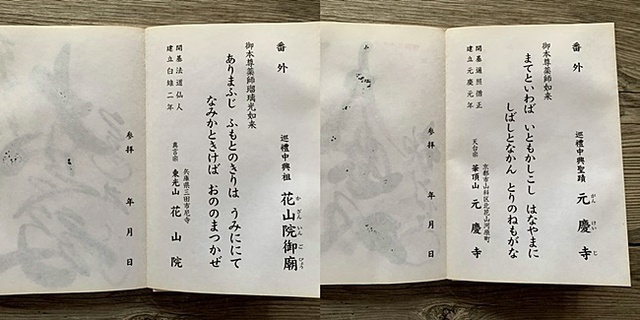 番外
巡禮中興祖 花山院御廟
かざんいんごびょう
御本尊薬師瑠璃光如来
ありまふじ ふもとのきりは うみににて
なみかときけば おののまつかぜ
開基法道仙人
建立白雉二年
兵庫県三田市尼寺
真言宗 東光山 花山院
参拝 年 月 日
番外
巡禮中興聖蹟 元慶寺
がんけいじ
御本尊薬師如来
まてといわば いともかしこし はなやまに
しばしとなかん とりのねもがな
開基遍照僧正
建立元慶元年
京都市山科区北花山河原町
天台宗 華頂山 元慶寺
参拝 年 月 日